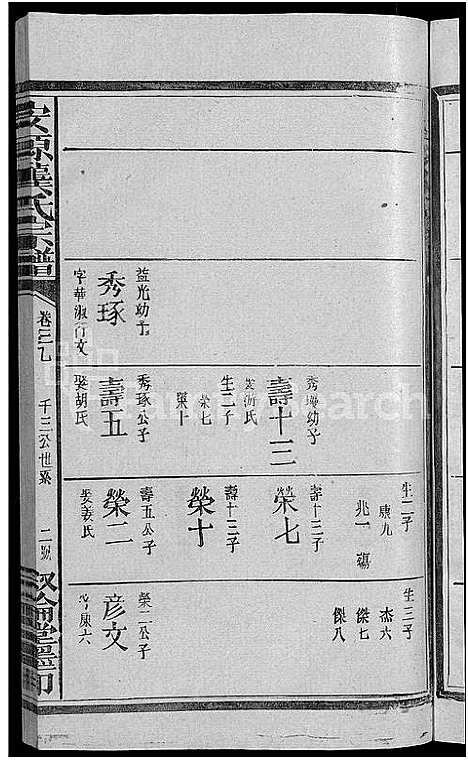 生二子
庚九
兆一 殤
生三子
杰六
傑七
傑八
秀 幼子
壽十三
娶游氏
生二子
榮七
榮十
壽十三子
榮七
壽十三子
榮十
益光幼子
秀琢
字華淑行文
秀琢公子
壽五
娶胡氏
壽五公子
榮二
娶姜氏
榮二公子
彦文
行庚六
龔氏宗譜
卷之九
千三公世系
二號
敘倫堂 印